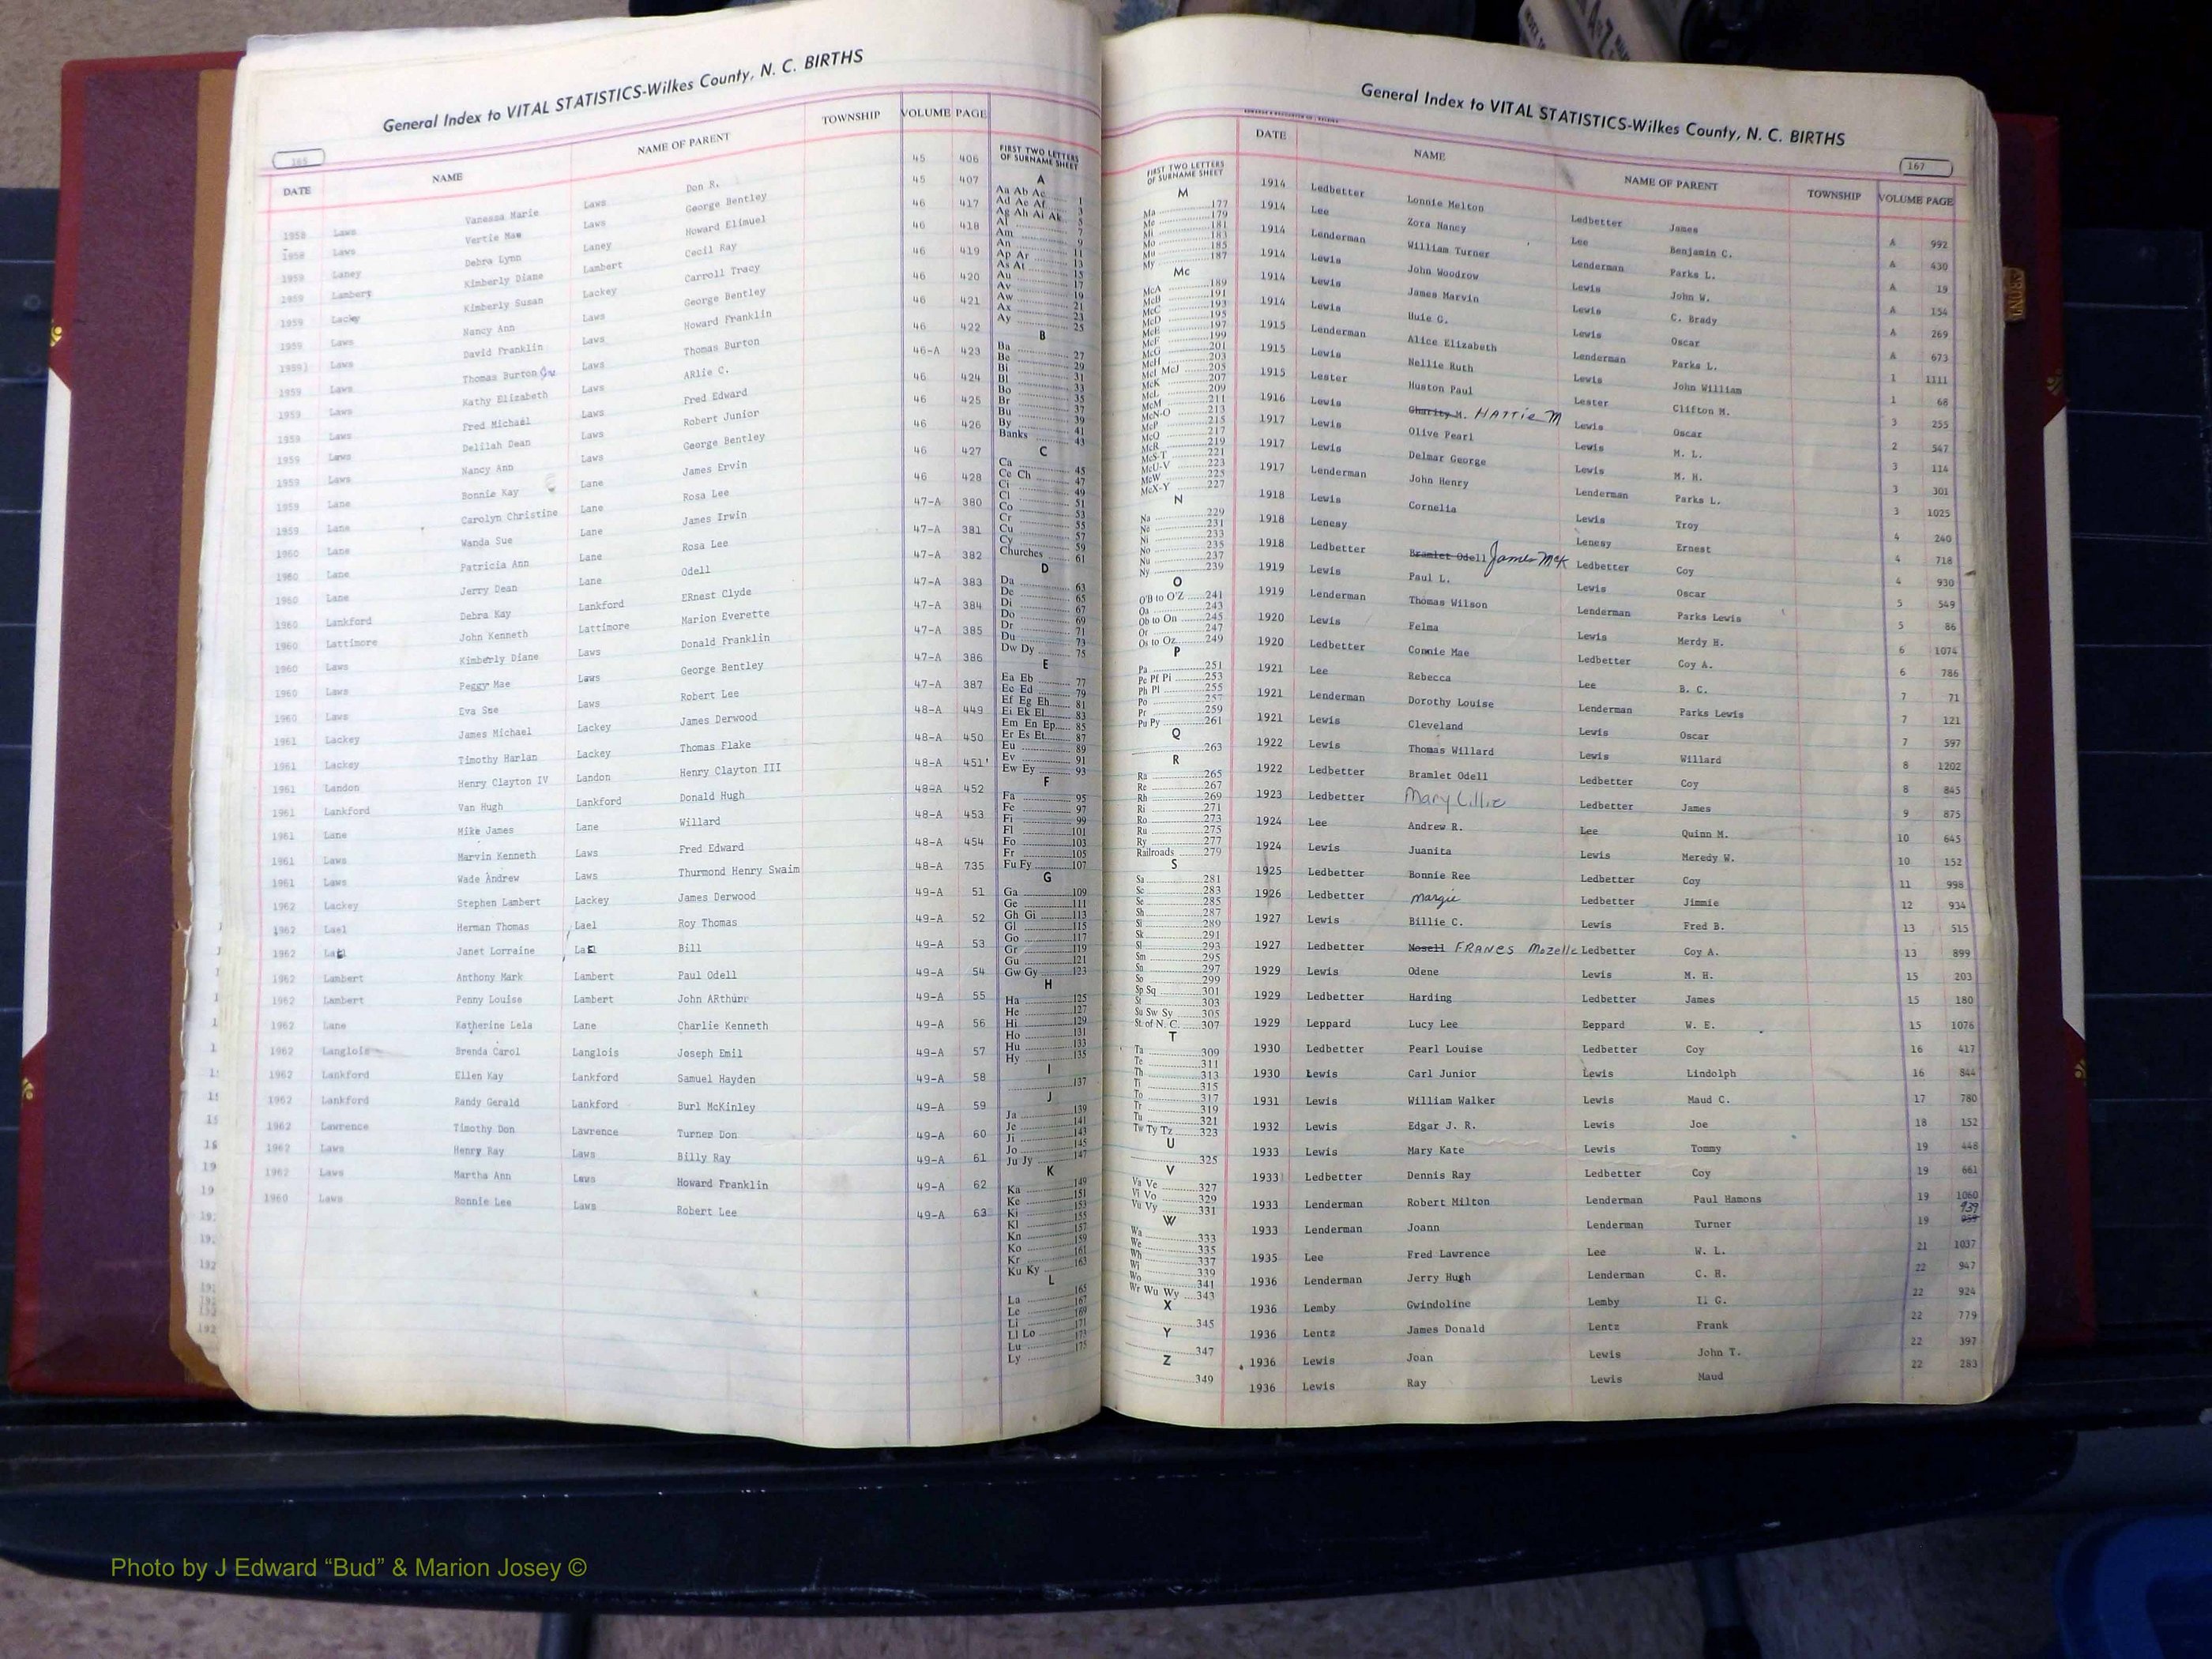 General Index to VITAL STATISTICS-Wilkes County, N. C. BIRTHS
165
DATE NAME NAME OF PARENT TOWNSHIP VOLUME PAGE
1958 Laws Vanessa Marie Laws Don R. 45 406
1958 Laws Vertie Mae Laws George Bentley 45 407
1959 Laney Debra Lynn Laney Howard Elimuel 46 417
1959 Lambert Kimberly Diane Lambert Cecil Ray 46 418
1959 Lacky Kimberly Susan Lackey Carroll Tracy 46 419
1959 Laws Nancy Ann Laws George Bentley 46 420
1959) Laws David Franklin Laws Howard Franklin 46 421
1959 Laws Thomas Burton Jr Laws Thomas Burton 46 422
1959 Laws Kathy Elizabeth Laws ARlie C. 46-A 423
1959 Laws Fred Michael Laws Fred Edward 46 424
1959 Laws Delilah Dean Laws Robert Junior 46 425
1959 Laws Nancy Ann Laws George Bentley 46 426
1959 Lane Bonnie Kay Lane James Ervin 46 427
1959 Lane Carolyn Christine Lane Rosa Lee 46 428
1960 Lane Wanda Sue Lane James Irwin 47-A 380
1960 Lane Patricia Ann Lane Rosa Lee 47-A 381
1960 Lane Jerry Dean Lane Odell 47-A 382
1960 Lankford Debra Kay Lankford ERnest Clyde 47-A 383
1960 Lattimore John Kenneth Lattimore Marion Everette 47-A 384
1960 Laws Kimberly Diane Laws Donald Franklin 47-A 385
1960 Laws Peggy Mae Laws George Bentley 47-A 386
1960 Laws Eva Sue Laws Robert Lee 47-A 387
1961 Lackey James Michael Lackey James Derwood 48-A 449
1961 Lackey Timothy Harlan Lackey Thomas Flake 48-A 450
1961 Landon Henry Clayton IV Landon Henry Clayton III 48-A 451
1961 Lankford Van Hugh Lankford Donald Hugh 48-A 452
1961 Lane Mike James Lane Willard 48-A 453
1961 Laws Marvin Kenneth Laws Fred Edward 48-A 454
1961 Laws Wade Andrew Laws Thurmond Henry Swaim 48-A 735
1962 Lackey Stephen Lambert Lackey James Derwood 49-A 51
1962 Lael Herman Thomas Lael Roy Thomas 49-A 52
1962 Lael Janet Lorraine Lael Bill 49-A 53
1962 Lambert Anthony Mark Lambert Paul Odell 49-A 54
1962 Lambert Penny Louise Lambert John ARthur 49-A 55
1962 Lane Katherine Lela Lane Charlie Kenneth 49-A 56
1962 Langlois Brenda Carol Langlois Joseph Emil 49-A 57
1962 Lankford Ellen Kay Lankford Samuel Hayden 49-A 58
1962 Lankford Randy Gerald Lankford Burl McKinley 49-A 59
1962 Lawrence Timothy Don Lawrence Turner Don 49-A 60
1962 Laws Henry Ray Laws Billy Ray 49-A 61
1962 Laws Martha Ann Laws Howard Franklin 49-A 62
1960 Laws Ronnie Lee Laws Robert Lee 49-A 63
FIRST TWO LETTERS
OF SURNAME SHEET
A
Aa Ab Ac 1
Ad Ae Af 3
Ag Ah Ai Ak 5
Al 7
Am 9
An 11
Ap Ar 13
As At 15
Au 17
Av 19
Aw 21
Ax 23
Ay 25
B
Ba 27
Be 29
Bi 31
Bl 33
Bo 35
Br 37
Bu 39
By 41
Banks 43
C
Ca 45
Ce Ch 47
Ci 49
Cl 51
Co 53
Cr 55
Cu 57
Cy 59
Churches 61
D
Da 63
De 65
Di 67
Do 69
Dr 71
Du 73
Dw Dy 75
E
Ea Eb 77
Ec Ed 79
Ef Eg Eh 81
Ei Ek El 83
Em En Ep 85
Er Es Et 87
Eu 89
Ev 91
Ew Ey 93
F
Fa 95
Fe 97
Fi 99
Fl 101
Fo 103
Fr 105
Fu Fy 107
G
Ga 109
Ge 111
Gh Gi 113
Gl 115
Go 117
Gr 119
Gu 121
Gw Gy 123
H
Ha 125
He 127
Hi 129
Ho 131
Hu 133
Hy 135
I
137
J
Ja 139
Je 141
Ji 143
Jo 145
Ju Jy 147
K
Ka 149
Ke 151
Ki 153
Kl 155
Kn 157
Ko 159
Kr 161
Ku Ky 163
L
La 165
Le 167
Li 169
Ll Lo 171
Lu 173
Ly 175
General Index to VITAL STATISTICS-Wilkes County, N. C. BIRTHS
167
FIRST TWO LETTERS
OF SURNAME SHEET
M
Ma 177
Me 179
Mi 181
Mo 183
Mu 185
My 187
Mc
McA 189
McB 191
McC 193
McD 195
McE 197
McF 199
McG 201
McH 203
McI McJ 205
McK 207
McL 209
McM 211
McN-O 213
McP 215
McQ 217
McR 219
McS-T 221
McU-V 223
McW 225
McX-Y 227
N
Na 229
Ne 231
Ni 233
No 235
Nu 237
Ny 239
O
O'B to O'Z 241
Oa 243
Ob to On 245
Or 247
Os to Oz 249
P
Pa 251
Pe Pf Pi 253
Ph Pl 255
Po 257
Pr 259
Pu Py 261
Q
263
R
Ra 265
Re 267
Rh 269
Ri 271
Ro 273
Ru 275
Ry 277
Railroads 279
S
Sa 281
Sc 283
Se 285
Sh 287
Si 289
Sk 291
Sl 293
Sm 295
Sn 297
So 299
Sp Sq 301
St 303
Su Sw Sy 305
St of N. C. 307
T
Ta 309
Te 311
Th 313
Ti 315
To 317
Tr 319
Tu 321
Tw Ty Tz 323
U
325
V
Va Ve 327
Vi Vo 329
Vu Vy 331
W
Wa 333
We 335
Wh 337
Wi 339
Wo 341
Wr Wu Wy 343
X
345
Y
347
Z
349
DATE NAME NAME OF PARENT TOWNSHIP VOLUME PAGE
1914 Ledbetter Lonnie Melton Ledbetter James A 992
1914 Lee Zora Nancy Lee Benjamin C. A 430
1914 Lenderman William Turner Lenderman Parks L. A 19
1914 Lewis John Woodrow Lewis John W. A 154
1914 Lewis James Marvin Lewis C. Brady A 269
1914 Lewis Huie G. Lewis Oscar A 673
1915 Lenderman Alice Elizabeth Lenderman Parks L. 1 1111
1915 Lewis Nellie Ruth Lewis John William 1 68
1915 Lester Huston Paul Lester Clifton M. 3 255
1916 Lewis Charity M. HATTie M Lewis Oscar 2 547
1917 Lewis Olive Pearl Lewis M. L. 3 114
1917 Lewis Delmar George Lewis M. H. 3 301
1917 Lenderman John Henry Lenderman Parks L. 3 1025
1918 Lewis Cornelia Lewis Troy 4 240
1918 Lenesy Lenesy Ernest 4 718
1918 Ledbetter Bramlet Odell James McK Ledbetter Coy 4 930
1919 Lewis Paul L. Lewis Oscar 5 549
1919 Lenderman Thomas Wilson Lenderman Parks Lewis 5 86
1920 Lewis Felma Lewis Merdy H. 6 1074
1920 Ledbetter Connie Mae Ledbetter Coy A. 6 786
1921 Lee Rebecca Lee B. C. 7 71
1921 Lenderman Dorothy Louise Lenderman Parks Lewis 7 121
1921 Lewis Cleveland Lewis Oscar 7 597
1922 Lewis Thomas Willard Lewis Willard 8 1202
1922 Ledbetter Bramlet Odell Ledbetter Coy 8 845
1923 Ledbetter Mary Lillie Ledbetter James 9 875
1924 Lee Andrew R. Lee Quinn M. 10 645
1924 Lewis Juanita Lewis Meredy W. 10 152
1925 Ledbetter Bonnie Ree Ledbetter Coy 11 998
1926 Ledbetter Margie Ledbetter Jimmie 12 934
1927 Lewis Billie C. Lewis Fred B. 13 515
1927 Ledbetter Nosell FRANCS Mozelle Ledbetter Coy A. 13 899
1929 Lewis Odene Lewis M. H. 15 203
1929 Ledbetter Harding Ledbetter James 15 180
1929 Leppard Lucy Lee Eeppard W. E. 15 1076
1930 Ledbetter Pearl Louise Ledbetter Coy 16 417
1930 Lewis Carl Junior Lewis Lindolph 16 844
1931 Lewis William Walker Lewis Maud C. 17 780
1932 Lewis Edgar J. R. Lewis Joe 18 152
1933 Lewis Mary Kate Lewis Tommy 19 448
1933 Ledbetter Dennis Ray Ledbetter Coy 19 661
1933 Lenderman Robert Milton Lenderman Paul Hamons 19 1060
1933 Lenderman Joann Lenderman Turner 19 939
1935 Lee Fred Lawrence Lee W. L. 21 1037
1936 Lenderman Jerry Hugh Lenderman C. H. 22 947
1936 Lemby Gwindoline Lemby Il G. 22 924
1936 Lentz James Donald Lentz Frank 22 779
1936 Lewis Joan Lewis John T. 22 397
1936 Lewis Ray Lewis Maud 22 283
Photo by J Edward “Bud” & Marion Josey ©